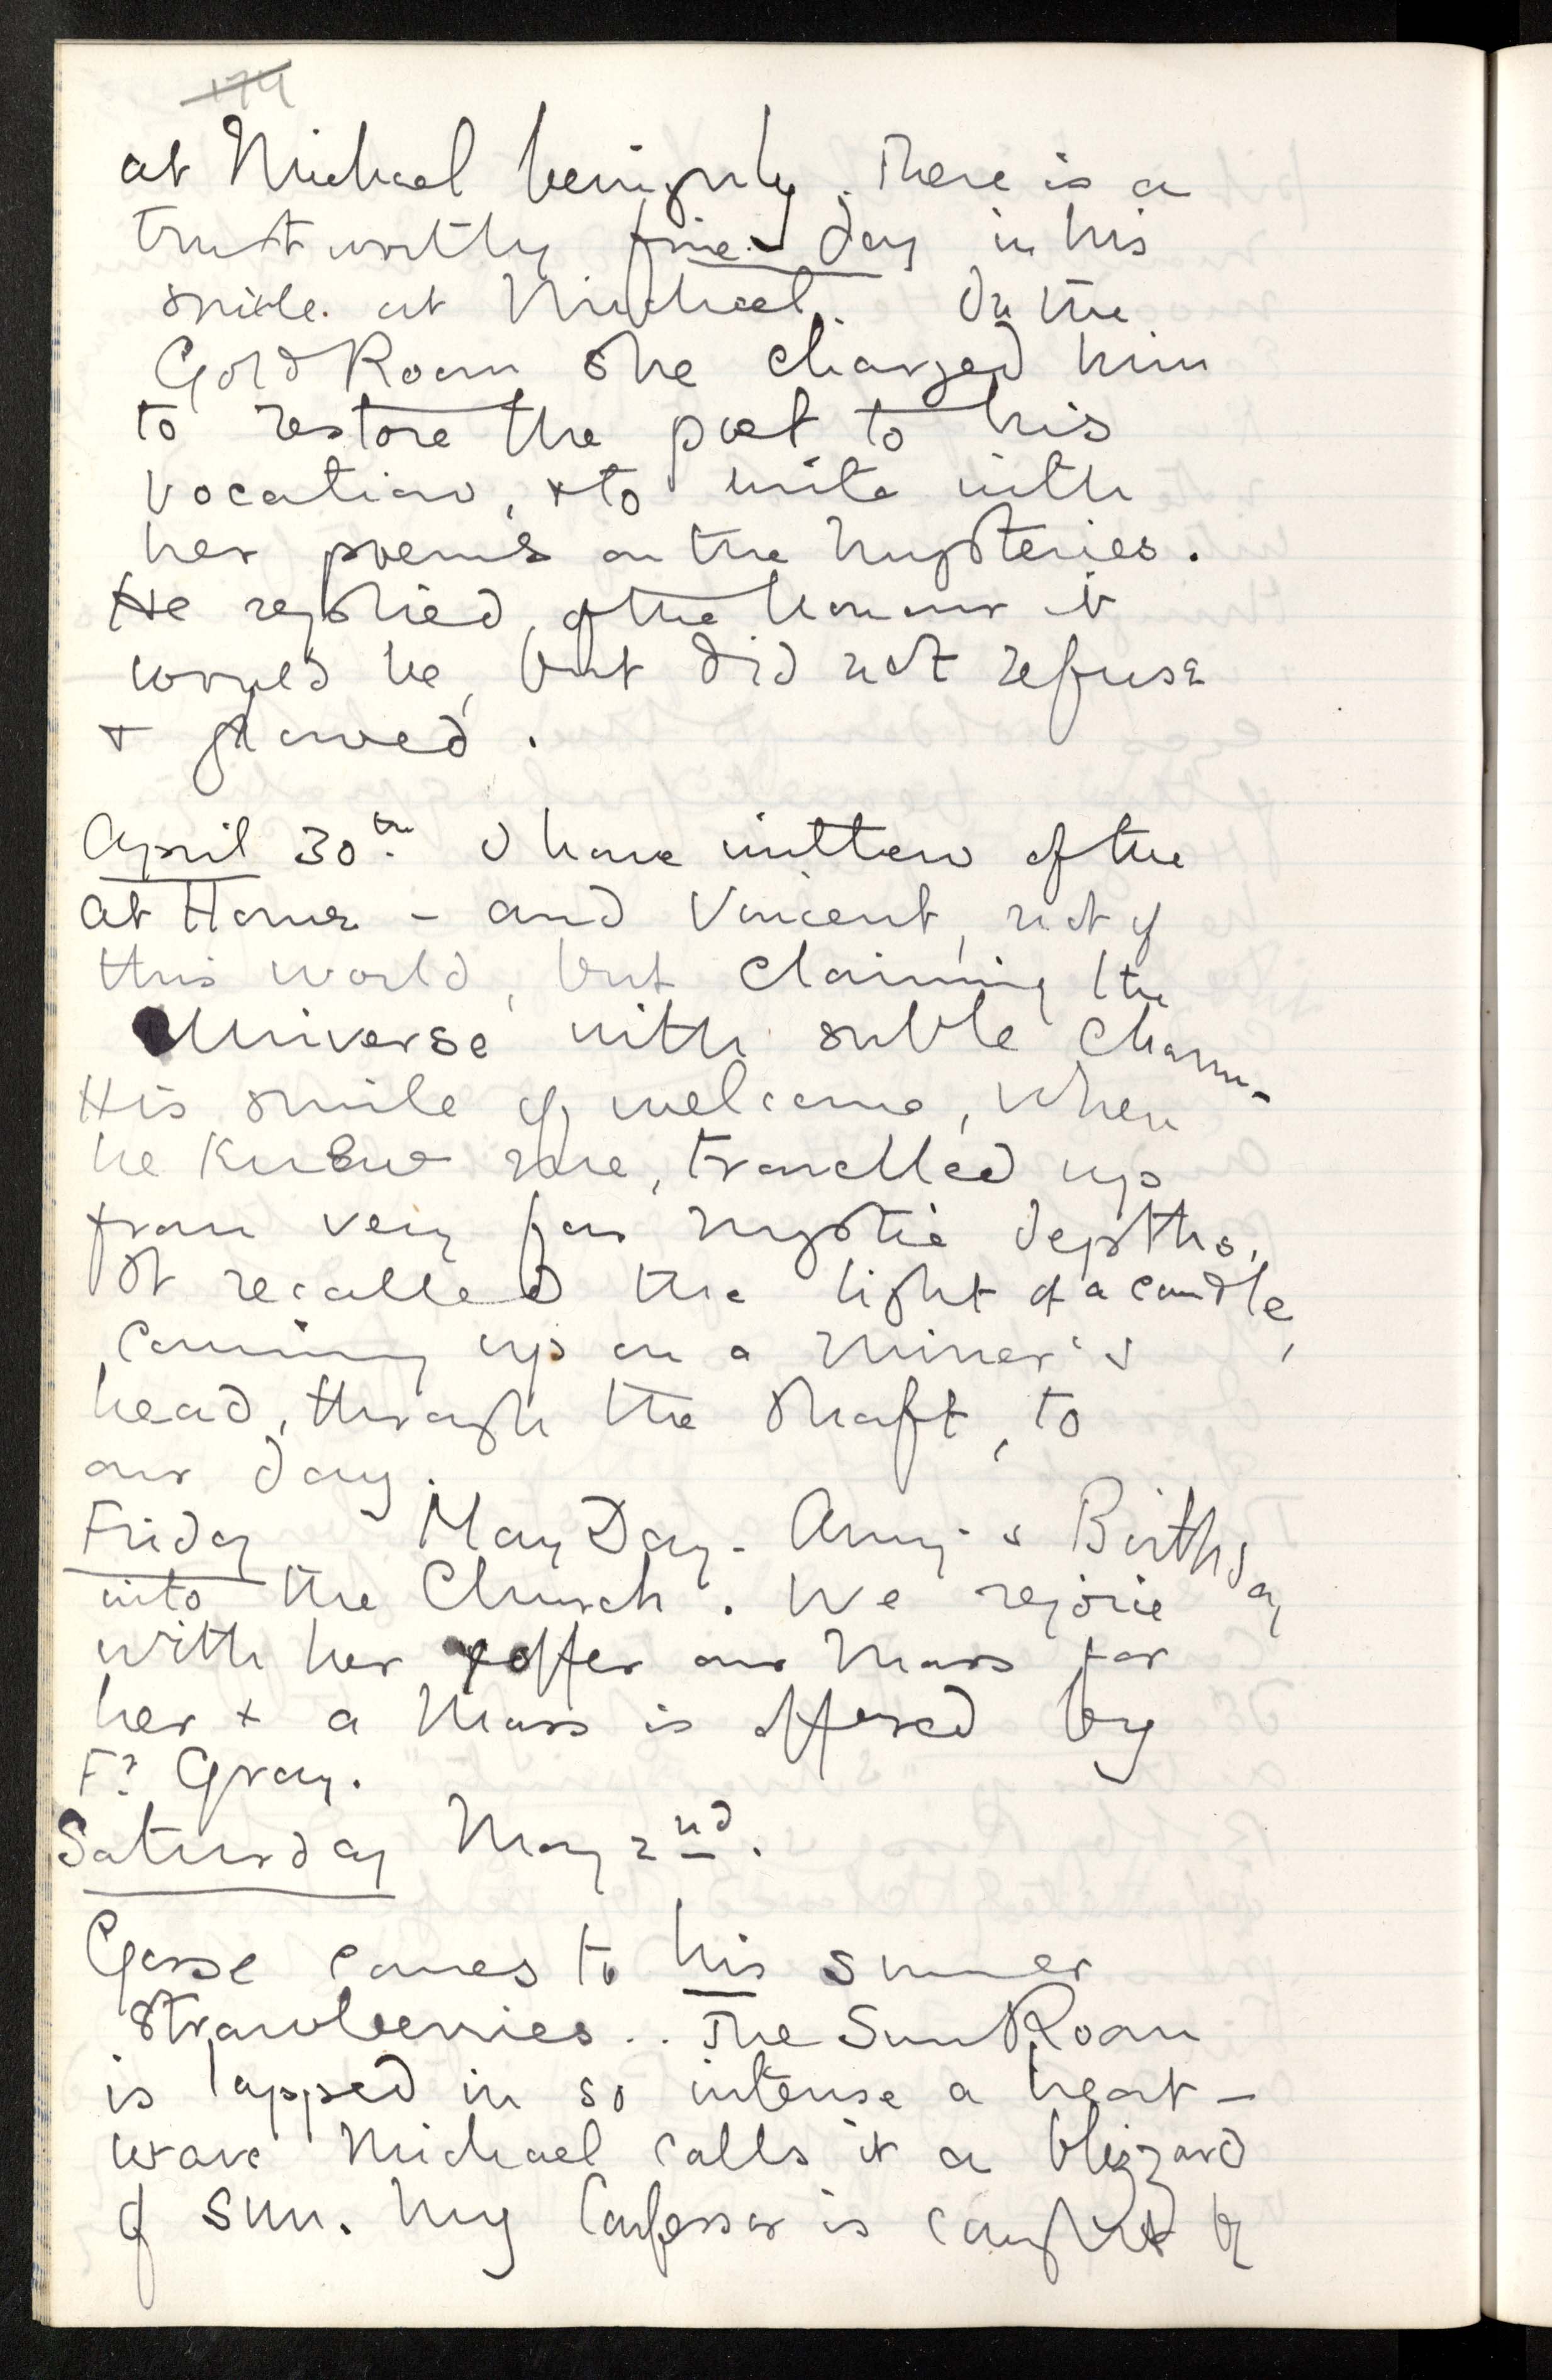 174
at Michael benignly. There is a
trustworthy fine day in his
smile at Michael. In the
Gold Room she charged him
to restore the poet to his
vocation, & to write with
her poems on the Mysteries.
He replied, of the honour it
would be, but did not refuse
& glowed.
April 30th. I have written of the
At Home – and Vincent, not of
this world, but claiming the
Universe with subtle charm.
His smile of welcome, when
he knew me, travelled up
from very far mystic depths.
It recalled the light of a candle,
coming up on a miner's
head, through the shaft, to
our day.
Friday May Day. Amy's Birthday
into the Church. We rejoice
with her & offer our Mass for
her & a Mass is offered by
Fr. Gray.
Saturday May 2nd.
Gosse comes to his summer
strawberries.. The Sun Room
is lapped in so intense a heat-
wave Michael calls it a blizzard
of sun. My Confessor is caught by